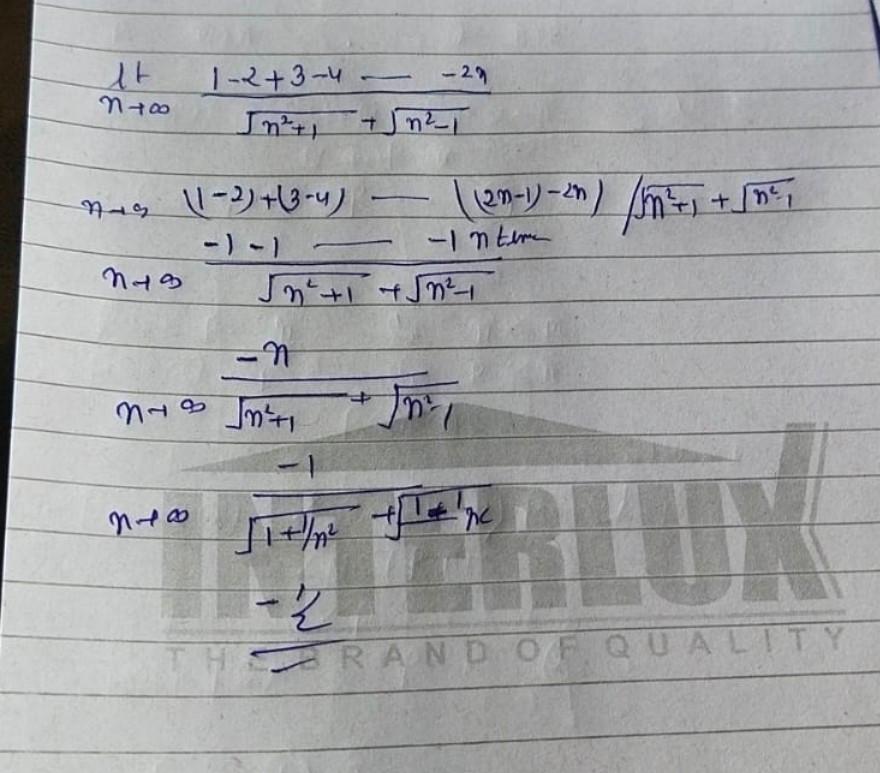 lt 1-2+3-4 — -2n
n→∞ √n²+1 + √n²-1
n→∞ (1-2)+(3-4) — ((2n-1)-2n) /√n²+1 + √n²-1
-1-1 — -1 n term
n→∞ √n²+1 + √n²-1
-n
n→∞ √n²+1 + √n²-1
-1
n→∞ √1+1/n² + √1
-1/2
INTERLUX
THE BRAND OF QUALITY